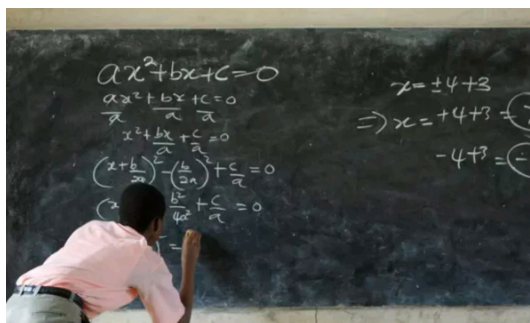 ax²+bx+c=0
ax²/a + bx/a + c/a = 0
x²+bx/a+c/a=0
(x+b/2a)²-(b/2a)²+c/a=0
(x b²/4a²+c/a=0
=
x=±4+3
⇒ x=+4+3=
-4+3=